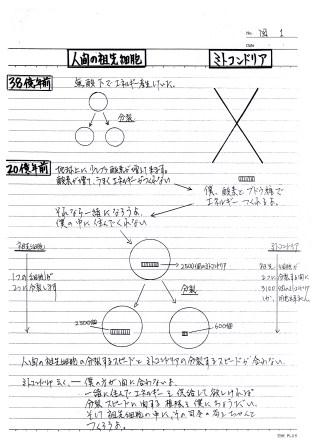 No. 図 1
Date
人間の祖先細胞
ミトコンドリア
38億年前
無酸素下でエネルギー産生していた。
分裂
20億年前
地球上に
酸素が増えて、うまくエネルギーがつくれない
僕、酸素とブドウ糖で
エネルギーつくれるよ。
それなら一緒になろうよ。
僕の中に住んでくれない
祖先細胞
ミトコンドリア
2500個のミトコンドリア
1つの細胞が
2つに分裂します
分裂
祖先細胞が
2つに分裂する間に
2500個
600個
人間の祖先細胞の分裂するスピードとミトコンドリアの分裂するスピードが合わない。
ミトコンドリア曰く、— 僕の方が間に合わないよ。
一緒に住んでエネルギーを供給して欲しければ
分裂スピードに関する権限を僕にちょうだい。
そして祖先細胞の中に、その司令の
つくろうよ。